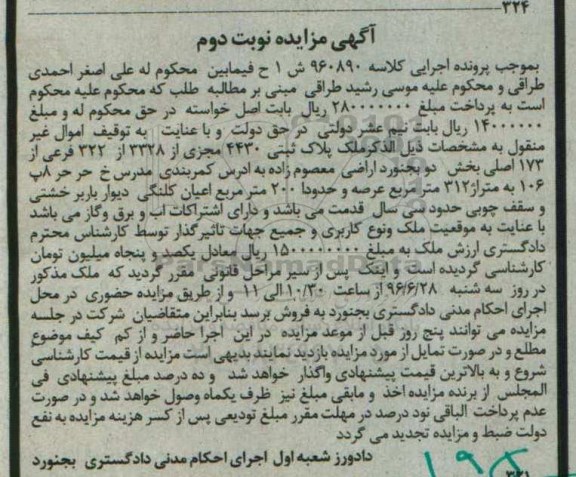 ۳۲۴
آگهی مزایده نوبت دوم
بموجب پرونده اجرایی کلاسه ۹۶۰۸۹۰ ش ۱ ح فیمابین محکوم له علی اصغر احمدی
طراقی و محکوم علیه موسی رشید طراقی مبنی بر مطالبه طلب که محکوم علیه محکوم
است به پرداخت مبلغ ۲۸۰۰۰۰۰۰۰ ریال بابت اصل خواسته در حق محکوم له و مبلغ
۱۴۰۰۰۰۰۰ ریال بابت نیم عشر دولتی در حق دولت و با عنایت به توقیف اموال غیر
منقول به مشخصات ذیل الذکرملک پلاک ثبتی ۴۴۳۰ مجزی از ۳۳۲۸ از ۳۲۲ فرعی از
۱۷۳ اصلی بخش دو بجنورد اراضی معصوم زاده به ادرس کمربندی مدرس خ حر حر ۸پ
۱۰۶ به متراژ۳۱۲ مترمربع عرصه و حدودا ۲۰۰ متر مربع اعیان کلنگی دیوار باربر خشتی
و سقف چوبی حدود سی سال قدمت می باشد و دارای اشتراکات اب و برق وگاز می باشد
با عنایت به موقعیت ملک ونوع کاربری و جمیع جهات تاثیرگذار توسط کارشناس محترم
دادگستری ارزش ملک به مبلغ ۱۵۰۰۰۰۰۰۰۰ ریال معادل یکصد و پنجاه میلیون تومان
کارشناسی گردیده است و اینک پس از سیر مراحل قانونی مقرر گردید که ملک مذکور
در روز سه شنبه ۹۶/۶/۲۸ از ساعت ۱۰/۳۰ الی ۱۱ و از طریق مزایده حضوری در محل
اجرای احکام مدنی دادگستری بجنورد به فروش برسد بنابراین متقاضیان شرکت در جلسه
مزایده می توانند پنج روز قبل از موعد مزایده در این اجرا حاضر و از کم کیف موضوع
مطلع و در صورت تمایل از مورد مزایده بازدید نمایند بدیهی است مزایده از قیمت کارشناسی
شروع و به بالاترین قیمت پیشنهادی واگذار خواهد شد و ده درصد مبلغ پیشنهادی فی
المجلس از برنده مزایده اخذ و مابقی مبلغ نیز ظرف یکماه وصول خواهد شد و در صورت
عدم پرداخت الباقی نود درصد در مهلت مقرر مبلغ تودیعی پس از کسر هزینه مزایده به نفع
دولت ضبط و مزایده تجدید می گردد
دادورز شعبه اول اجرای احکام مدنی دادگستری بجنورد
۳۲۱